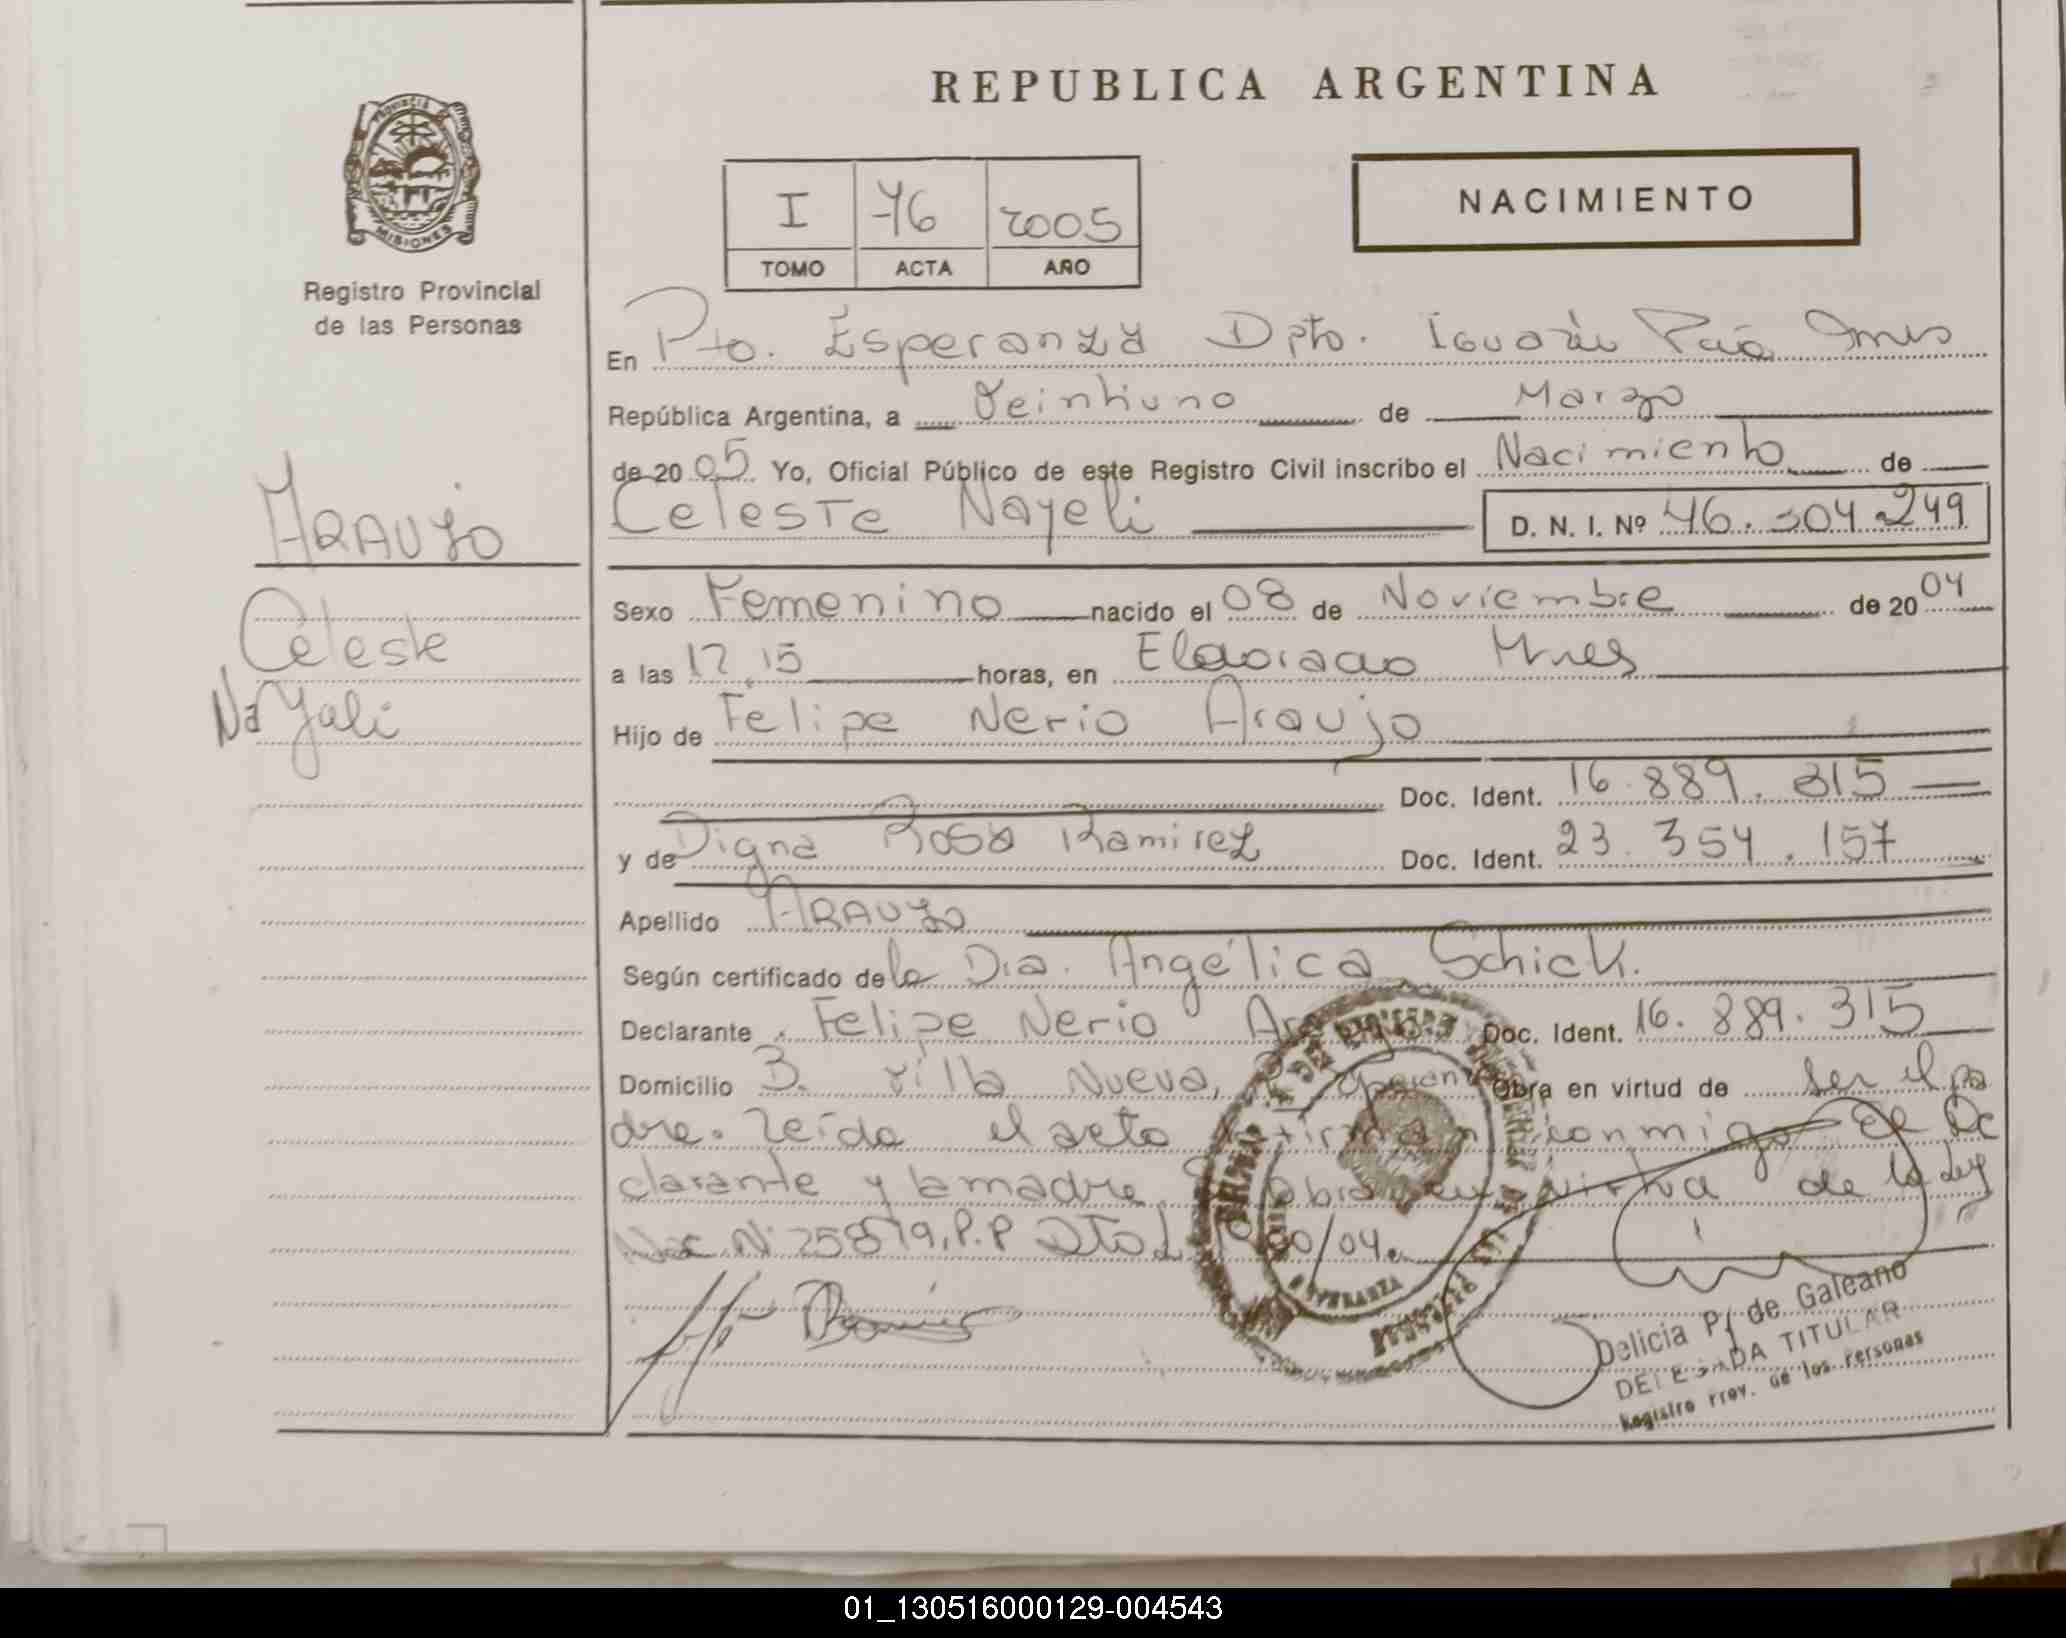 REPUBLICA ARGENTINA
PROVINCIA
MISIONES
Registro Provincial
de las Personas
I 76 2005
TOMO ACTA AÑO
NACIMIENTO
En Pto. Esperanza Dpto. Iguazú Pcia Mnes
República Argentina, a Veintiuno de Marzo
de 2005 Yo, Oficial Público de este Registro Civil inscribo el Nacimiento de
Celeste Nayeli D. N. I. Nº 46.304.249
ARAUJO
Celeste
Nayeli
Sexo Femenino nacido el 08 de Noviembre de 2004
a las 12,15 horas, en Eldorado Mnes
Hijo de Felipe Nerio Araujo
Doc. Ident. 16.889.315
y de Digna Rosa Ramirez Doc. Ident. 23.354.157
Apellido ARAUJO
Según certificado de la Dra. Angélica Schick.
Declarante Felipe Nerio Doc. Ident. 16.889.315
Domicilio B. Villa Nueva, Obra en virtud de ser el pa
dre. Leída el acta firman conmigo el De
clarante y la madre. obra en virtud de la Ley
Nac Nº 25819, P.P Dto /04.
ESPERANZA
Delicia P. de Galeano
DELEGADA TITULAR
Registro Prov. de las Personas
01_130516000129-004543